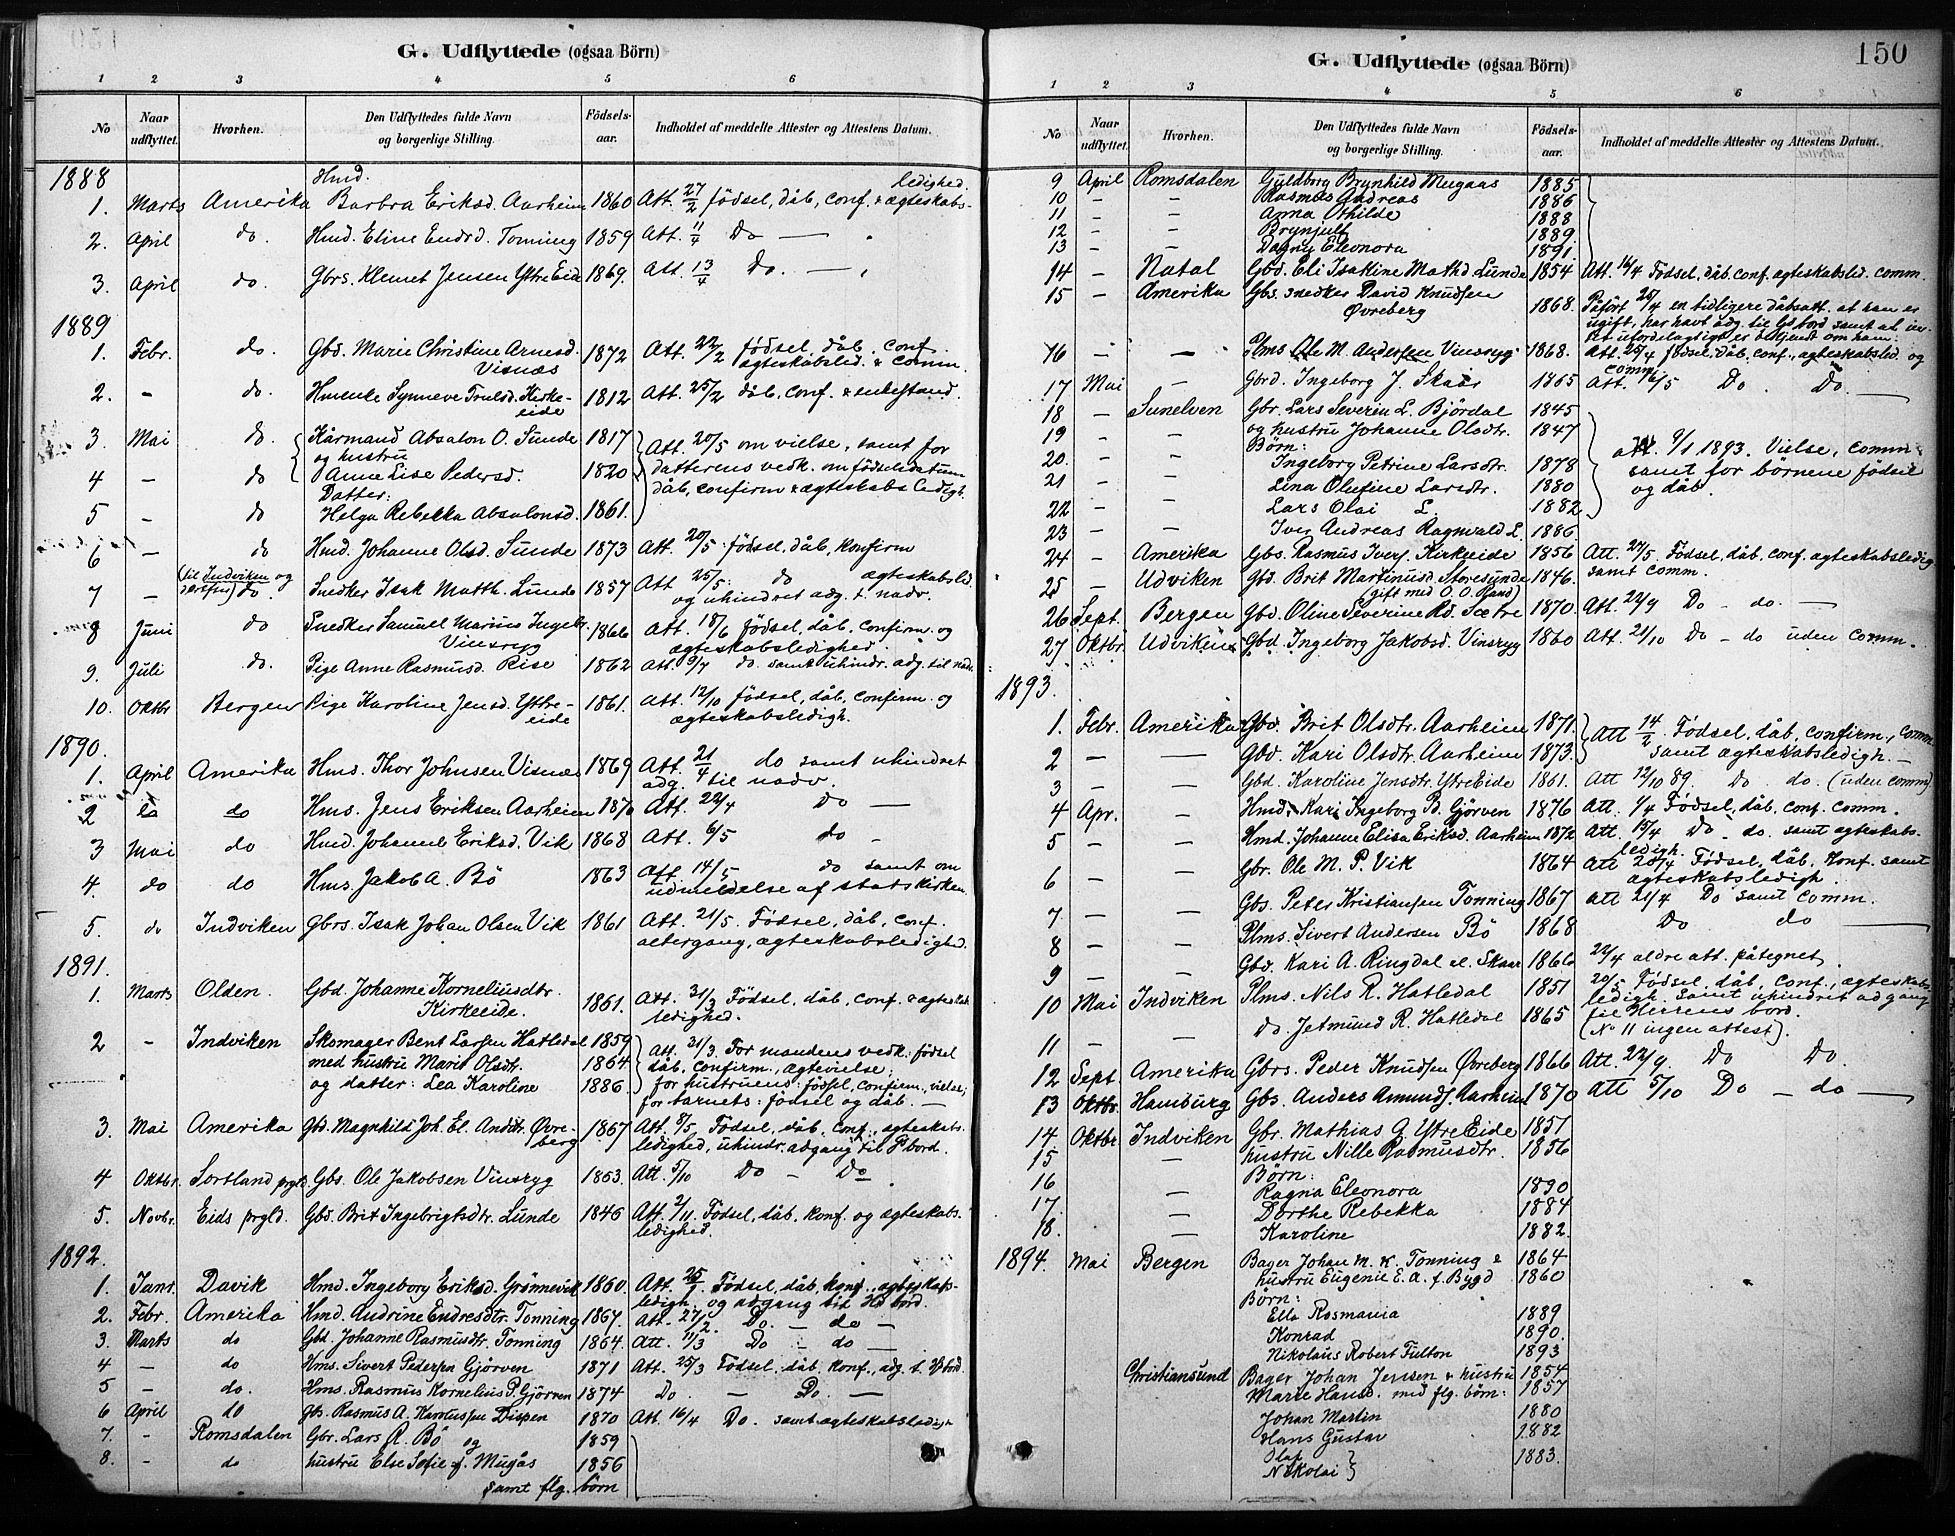 G. Udflyttede (ogsaa Börn)
1 2 3 4 5 6
No Naar udflyttet. Hvorhen. Den Udflyttedes fulde Navn og borgerlige Stilling. Fødsels-aar. Indholdet af meddelte Attester og Attestens Datum.
1888 Hmd. ledighed.
1. Marts Amerika Barbra Eriksd. Aarheim 1860 Att. 27/2 födsel, dåb, conf. & ægteskabs-
2. April do. Hmd. Eline Endrd. Tonning 1859 Att. 11/4 Do — "
3. April do. Gbrs. Klemet Jensen Ytre Eide 1869. Att. 13/4 Do. — "
1889
1. Febr. do. Gbd. Marie Christine Arnesd. 1872 Att. 22/2 födsel, dåb, conf.
Visnæs ægteskabsled. & comm.
2. - do. Hmenke Synneve Trulsd. Kirke- 1812 Att. 25/2 dåb, conf. & enkestand.
eide
3. Mai do. Kårmand Absalon O. Sunde 1817 Att. 20/5 om vielse, samt for
og hustru
4 - do Anne Lise Pedersd. 1820 datterens vedk. om födselsdatum
Datter: dåb, confirm & ægteskabsledigh.
5 - do Helga Rebekka Absalonsd. 1861.
6 - do Hmd. Johanne Olsd. Sunde 1873 Att. 20/5 födsel, dåb, konfirm
(til Indviken og
7 - derfra) do. Snedker Isak Matth. Lunde 1857 Att 25/5: do ægteskabsled.
og uhindret adg. t. nadv.
8 Juni do Snedker Samuel Marius Ingebr. 1866 Att. 18/6 födsel, dåb, confirm. og
Vinsryg ægteskabsledighed.
9. Juli do. Pige Anne Rasmusd. Rise 1862 Att. 9/7 do. samt uhindr. adg. til nadv.
10. Oktbr Bergen Pige Karoline Jensd. Ytre- 1861. Att. 12/10 födsel, dåb, confirm. og
eide ægteskabsledigh.
1890.
1. April Amerika Hms. Thor Johnsen Visnæs 1869 Att. 21/4 do samt uhindret
adg. til nadv.
2 do do Hms. Jens Eriksen Aarheim 1870 Att. 22/4 Do —
3 Mai do Hmd. Johanne Eriksd. Vik 1868 Att. 6/5 do -
4. do do Hms. Jakob A. Bö 1863 Att. 14/5 do samt om
udmeldelse af statskirken.
5. do Indviken Gbrs. Isak Johan Olsen Vik 1861 Att. 21/5. Födsel, dåb, conf.
altergang, ægteskabsledighed.
1891.
1. Marts Olden. Gbd. Johanne Korneliusdtr. 1861. Att. 31/3 Födsel, dåb, conf. & ægtesk
Kirkeeide. ledighed.
2 - Indviken Skomager Bent Larsen Hatledal 1859 Att. 31/3. For mandens vedk: födsel
med hustru Marit Olsdtr. 1864 dåb, confirm., ægtevielse;
og datter: Lea Karoline 1886. for hustruens: födsel, confirm, vielse;
for barnets: födsel og dåb. —
3. Mai Amerika Gbd. Magnhild Joh. El. Anddtr. Øvre- 1867 Att. 8/5, Födsel, dåb, conf., ægteskabs.
berg ledighed, uhindr. adgang til H bord.
4 Oktbr. Sortland prgld. Gbs. Ole Jakobsen Vinsryg 1863. Att. 5/10 Do - Do
5. Novbr. Eids prgld. Gbd. Brit Ingebrigtsdtr. Lunde 1846 Att. 2/11. Födsel, dåb, konf. og ægteskabs.
ledighed.
1892.
1. Janr. Davik Hmd. Ingeborg Eriksd. Grönnevik 1860. Att. 25/1. Födsel, dåb, konf., ægteskabs-
ledigh. og adgang til Hs bord.
2. Febr. Amerika Hmd. Andrine Endresdtr. Tonning 1867. Att. 27/2. Do. — do —
3. Marts do Gbd. Johanne Rasmusdtr. Tonning 1864. Att. 11/3 Do — do —
4 — do Hms. Sivert Pedersen Gjörven 1871 Att. 25/3 Födsel, dåb, konf., adg. t. H bord.
5 - do. Hms. Rasmus Kornelius P. Gjörven 1874 Do. — Do. —
6 April do Gbs. Rasmus A. Karolussen Dispen 1870 Att. 16/4 Do. samt ægteskabsledigh
7. - Romsdalen Gbr. Lars R. Bö og 1859
8. - do hustru Else Sofie f. Mugås 1856
samt flg. börn
G. Udflyttede (ogsaa Börn) 150
1 2 3 4 5 6
No Naar udflyttet. Hvorhen. Den Udflyttedes fulde Navn og borgerlige Stilling. Fødsels-aar. Indholdet af meddelte Attester og Attestens Datum.
9 April Romsdalen Guldborg Brynhild Mugaas 1885
10 - — Rasmus Andreas 1886
11 - — Anna Othilde 1888
12 - — Brynjulf 1889
13 - — Dagny Eleonora 1891.
14 - Natal Gbd. Eli Isakine Mathd Lunde 1854 Att. 16/4 Födsel, dåb, conf. ægteskabsled. comm.
15 - Amerika Gbs. snedker David Knudsen Påfört 25/4 en tidligere dåbsatt. at han er
Øvreberg 1868. ugift, har havt adg. til Gds bord samt at in-
tet ufordelagtigt er bekjendt om ham.
16 - — Plms Ole M. Andersen Vinsryg 1868. Att. 25/4 födsel, dåb, conf., ægteskabsled. og
comm.
17 Mai — Gbrd. Ingeborg J. Skaar 1865 Att. 16/5 Do. Do. —
18 - Sunelven Gbr. Lars Severin L. Björdal 1845
19 - - og hustru Johanne Olsdtr. 1847 att. 9/1 1893. Vielse, comm.
Börn:
20. - - Ingeborg Petrine Larsdtr. 1878 samt for börnene födsel
21 - - Lina Olufine Larsdtr. 1880 og dåb.
22 - - Lars Olai L. 1882
23 - — Iver Andreas Ragnvald L. 1886
24 - Amerika Gbs. Rasmus Ivers. Kirkeeide 1856 Att. 24/5. Födsel, dåb, conf. ægteskabsledig.
samt comm.
25 - Udviken Gbd. Brit Martinusd. Storesunde 1846.
(gift med O. O. Rand)
26 Sept. Bergen Gbd. Oline Severine Rd. Sætre 1870. Att. 22/9 Do - do. —
27 Oktbr. Udviken Gbd. Ingeborg Jakobsd. Vinsryg 1860 Att. 21/10 Do - do uden comm.
1893.
1. Febr. Amerika Gbd. Brit Olsdtr. Aarheim 1871. Att 14/2. Födsel, dåb, confirm., comm
2 — — Gbd. Kari Olsdtr. Aarheim 1873. samt ægteskabsledigh. —
3 — — Gbd. Karoline Jensdtr. Ytre Eide 1861. Att 12/10 89 Do do. (uden comm)
4 Apr. — Hmd. Kari Ingeborg Pd. Gjörven 1876 Att. 1/4 Födsel, dåb, conf. comm.
5 — — Hmd. Johanne Elisa Eriksd. Aarheim 1872 Att. 15/4 Do - do. samt ægteskabs-
ledigh.
6 — — Gbr. Ole M. P. Vik 1864 Att 20/4 Födsel, dåb, konf. samt
ægteskabsledigh.
7 — — Gbs. Peter Kristiansen Tonning 1867 Att 21/4 Do samt comm.
8 — — Plms. Sivert Andersen Bö 1868 Do do —
9 — — Gbd. Kari A. Ringdal el. Skaar 1866 22/4 ældre att. påtegnet.
10 Mai Indviken Plms. Nils R. Hatledal 1851 20/5 Födsel, dåb, conf., ægteskabs-
ledigh. samt uhindret adgang
11 — — do. Jetmund R. Hatledal 1865 til Herrens bord.
(No 11 ingen attest).
12 Sept. Amerika Gbrs. Peder Knudsen Øvreberg 1866 Att. 22/9. Do Do.
13 Oktbr. Hamburg Gbs. Anders Amunds. Aarheim 1870 Att 5/10 Do — do —
14 Oktbr Indviken Gbr. Mathias G. Ytre Eide 1851
15 — hustru Nille Rasmusdtr. 1856
Börn:
16 — Ragna Eleonora 1890
17. — Dorthe Rebekka 1884
18. — Karoline 1882.
1894. Mai Bergen Bager Johan M. K. Tonning & 1864
hustru Eugenie E. A. f. Bygd 1860
Börn:
Ella Rosmania 1889
Konrad 1890.
Nikolaus Robert Fulton 1893
Christiansund Bager Johan Jensen & hustru 1854
Marie Hansd. med flg. börn: 1857
Johan Martin 1880
Hans Gustav 1882
Olaf 1883.
Nikolai